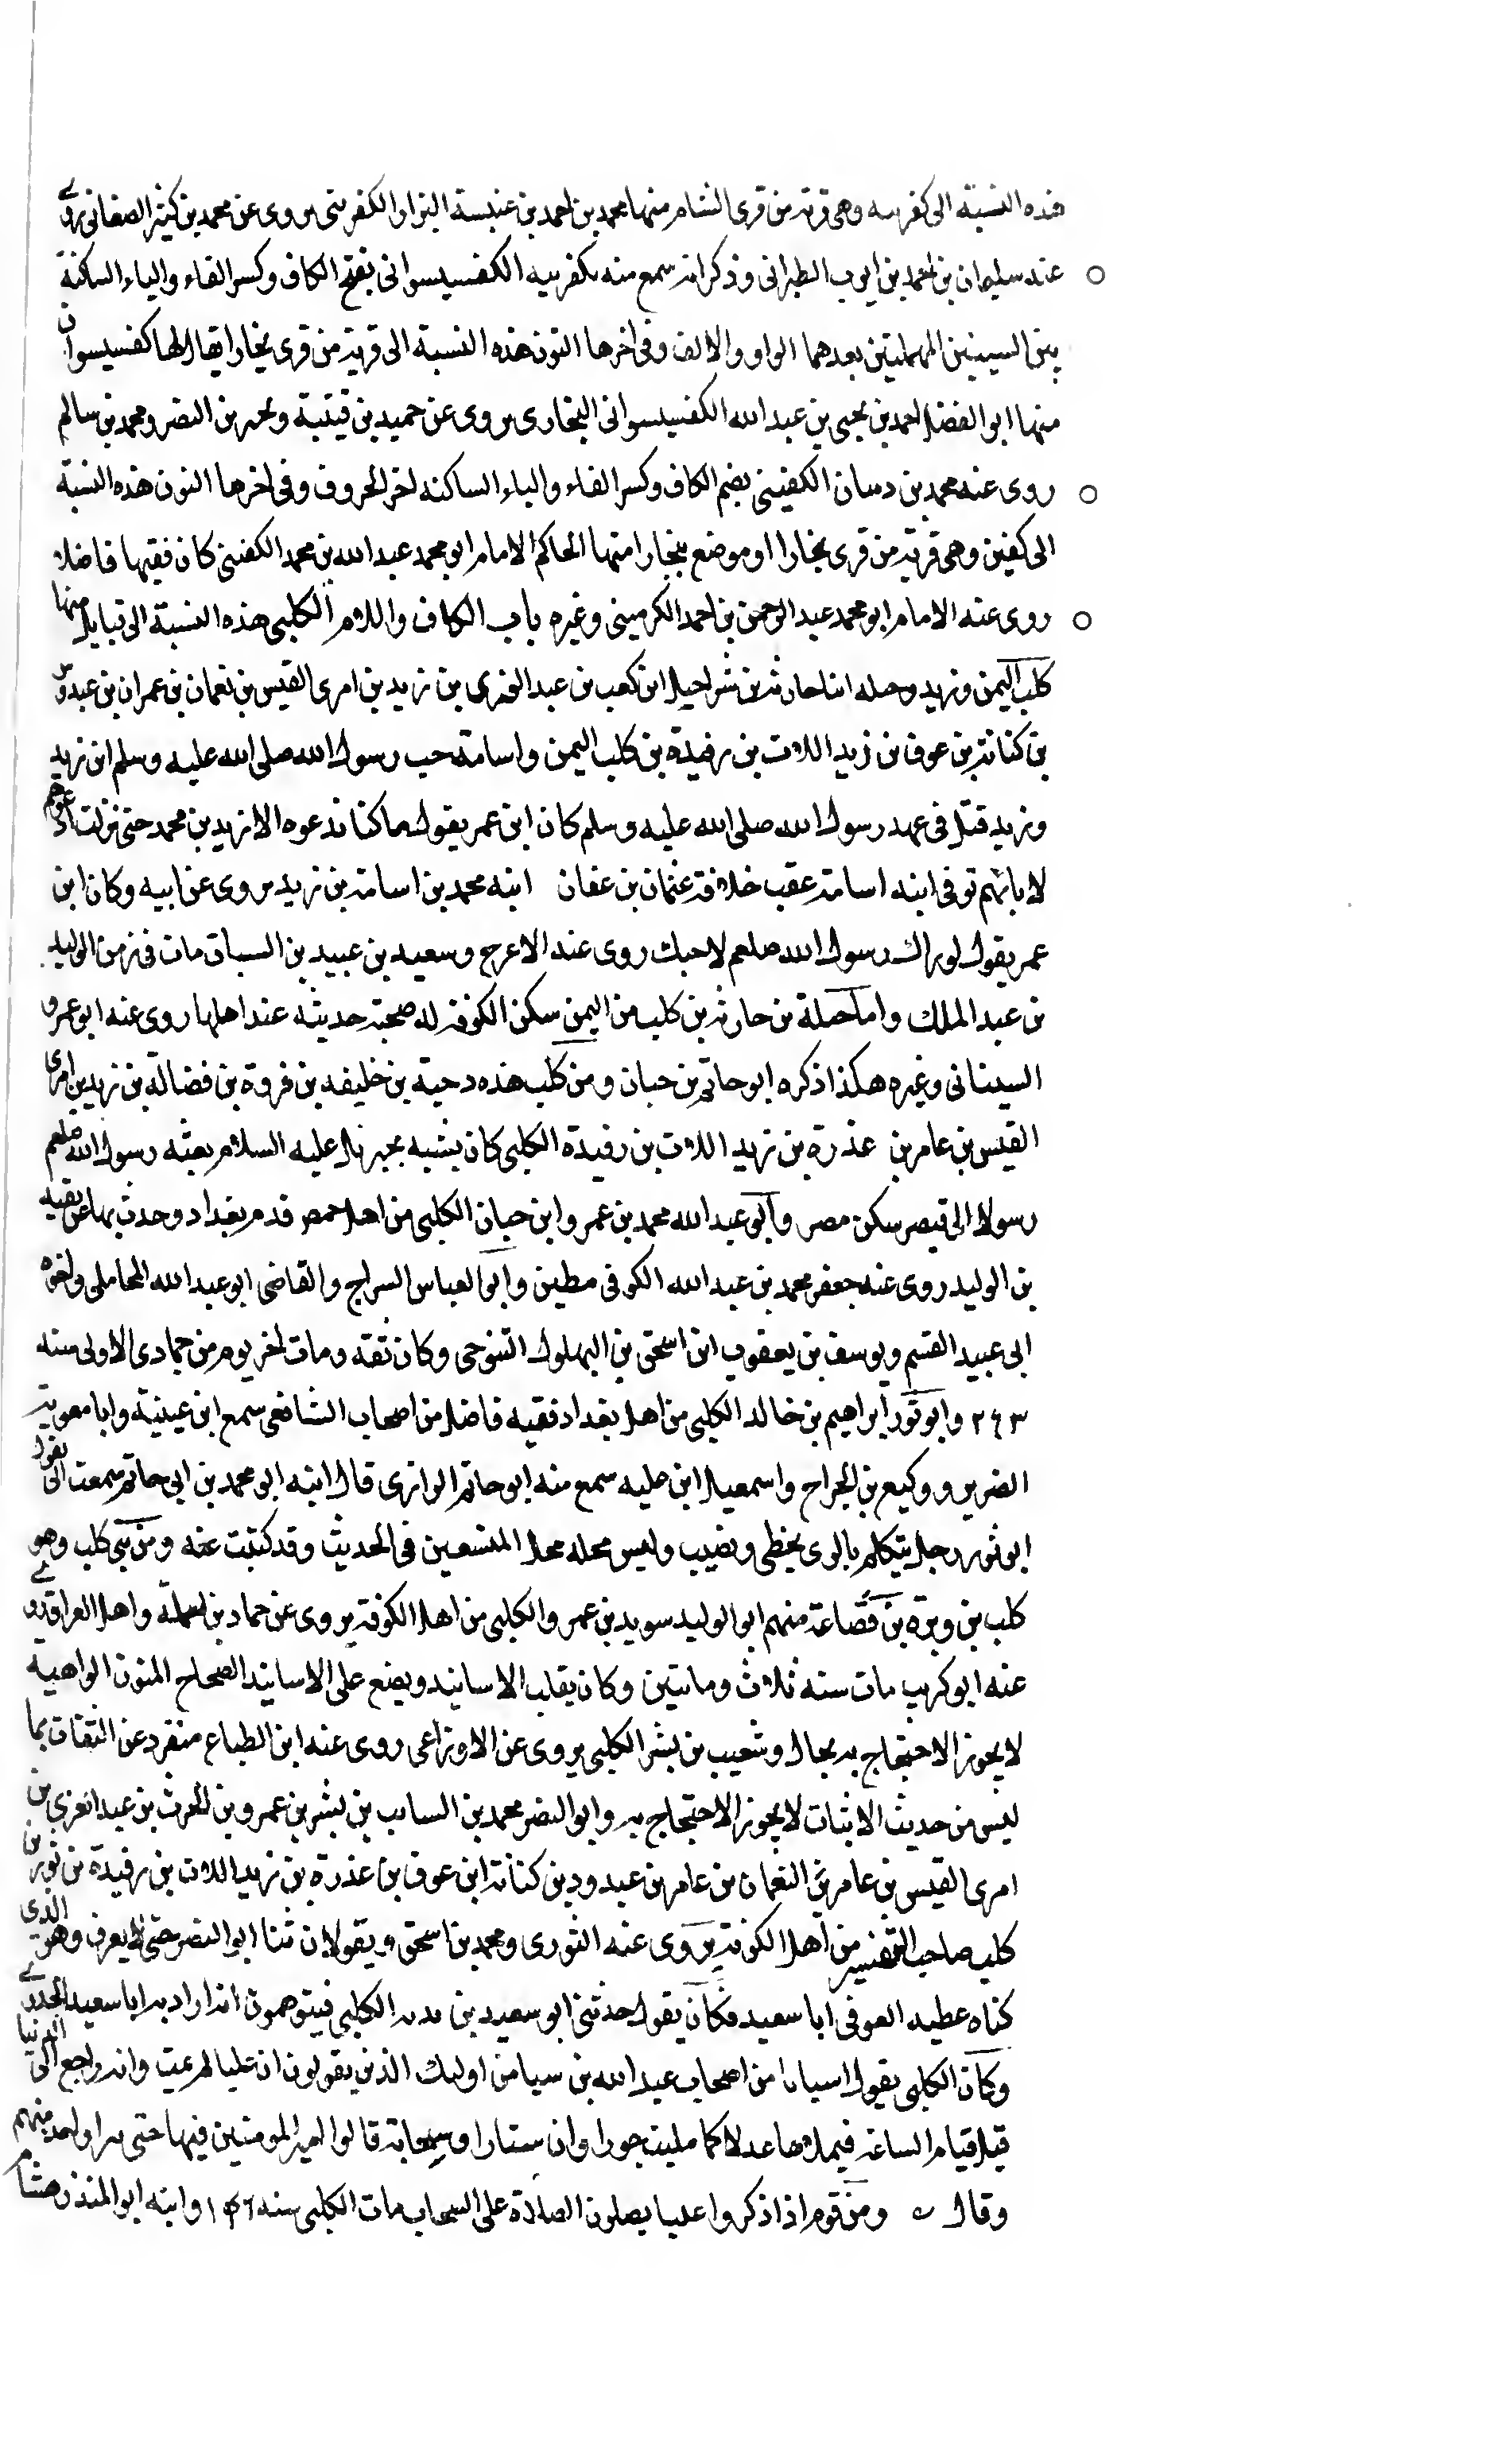 هذه النسبة الى كفربيه وهى قرية من قرى الشام منها محمد بن احمد بن عنبسة البزار الكفربتى يروى عن محمد بن كثير الصغانى روى
عنه سليمان بن احمد بن ايوب الطبرانى وذكر انه سمع منه بكفربيه الكفسيسوانى بفتح الكاف وكسر الفاء والياء الساكنة
بين السينين المهملتين بعدهما الواو والالف وفى اخرها النون هذه النسبة الى قرية من قرى بخارا يقال لها كفسيسوان
منها ابو الفضل احمد بن يحيى بن عبد الله الكفسيسوانى البخارى يروى عن حميد بن قتيبة وبحير بن النضر ومحمد بن سالم
روى عنه محمد بن دسان الكفينى بضم الكاف وكسر الفاء والياء الساكنه اخر الحروف وفى اخرها النون هذه النسبة
الى كفين وهى قرية من قرى بخارا او موضع ببخارا منها الحاكم الامام ابو محمد عبد الله بن محمد الكفينى كان فقيها فاضلا
روى عنه الامام ابو محمد عبد الرحمن بن احمد الكرمينى وغيره باب الكاف واللام الكلبى هذه النسبة الى قبايل منها
كلب اليمن وزيد وجبله ابنا حارثة بن شراحيل ابن كعب بن عبد العزى بن زيد بن امرى القيس بن نعمان بن عمران بن عبدوس
بن كنانة بن عوف بن زيد اللات بن رفيدة بن كلب اليمن واسامة حب رسول الله صلى الله عليه وسلم ابن زيد
وزيد قتل فى عهد رسول الله صلى الله عليه وسلم كان ابن عمر يقول ما كنا ندعوه الا زيد بن محمد حتى نزلت ادعوهم
لابائهم توفى ابنه اسامة عقب خلافة عثمان بن عفان ابنه محمد بن اسامة بن زيد يروى عن ابيه وكان ابن
عمر يقول لو راك رسول الله صلعم لاحبك روى عنه الاعرج وسعيد بن عبيد بن السباق مات فى زمن الوليد
بن عبد الملك واما جبلة بن حارثة بن كلب من اليمن سكن الكوفة له صحبة حديثه عند اهلها روى عنه ابو عمرو
السيبانى وغيره هكذا ذكره ابو حاتم بن حبان ومن كلب هذه دحية بن خليفه بن فروة بن فضالة بن زيد بن امرى
القيس بن عامر بن عذرة بن زيد اللات بن رفيدة الكلبى كان يشبه بجبريل عليه السلام بعثه رسول الله صلعم
رسولا الى قيصر سكن مصر وابو عبد الله محمد بن عمرو ابن حبان الكلبى من اهل حمص قدم بغداد وحدث بها عن بقيه
بن الوليد روى عنه جعفر محمد بن عبد الله الكوفى مطين وابو العباس السراج والقاضى ابو عبد الله المحاملى واخوه
ابى عبيد القسم ويوسف بن يعقوب ابن اسحق بن البهلول التنوخى وكان ثقه ومات اخر يوم من جمادى الاولى سنه
٢٤٣ وابو ثور ابراهيم بن خالد الكلبى من اهل بغداد فقيه فاضل من اصحاب الشافعى سمع ابن عيينة وابا معوية
الضرير ووكيع بن الجراح واسمعيل ابن عليه سمع منه ابو حاتم الرازى قال ابنه ابو محمد بن ابى حاتم سمعت ابى يقول
ابو ثور رجل يتكلم بالرى يخطى ويصيب وليس محله محل المتسعين فى الحديث وقد كتبت عنه ومن بنى كلب وهو
كلب بن وبرة بن قضاعة منهم ابو الوليد سويد بن عمرو الكلبى من اهل الكوفة يروى عن حماد بن سلمة واهل العراق روى
عنه ابو كريب مات سنه ثلاث ومائتين وكان يقلب الاسانيد ويضع على الاسانيد الصحاح المتون الواهية
لا يجوز الاحتجاج به بحال وشعيب بن بشر الكلبى يروى عن الاوزاعى روى عنه ابن الطباع منفرد عن الثقات بما
ليس من حديث الاثبات لا يجوز الاحتجاج به وابو النضر محمد بن السايب بن بشر بن عمرو بن الحرث بن عبد العزى بن
امرى القيس بن عامر بن النعمان بن عامر بن عبد ود بن كنانة ابن عوف بن عذرة بن زيد اللات بن رفيدة بن ثور بن
كلب صاحب التفسير من اهل الكوفة يروى عنه الثورى ومحمد بن اسحق ويقولان ثنا ابو النضر حتى لا يعرف وهو الذى
كناه عطيه العوفى ابا سعيد فكان يقول حدثنى ابو سعيد بن الكلبى فيتوهمون انه اراد به ابا سعيد الخدرى
وكان الكلبى يقول اسبانا من اصحاب عبد الله بن سبا من اوليك الذين يقولون ان عليا لم يمت وانه راجع الى الدنيا
قبل قيام الساعة فيملاها عدلا كما مليت جورا وان سحابة قالوا امير المومنين فيها حتى منهم
وقال ومن قوم اذا ذكروا عليا يصلون الصلاة على السحاب مات الكلبى سنه ١٤٦ وابنه ابو المنذر هشام